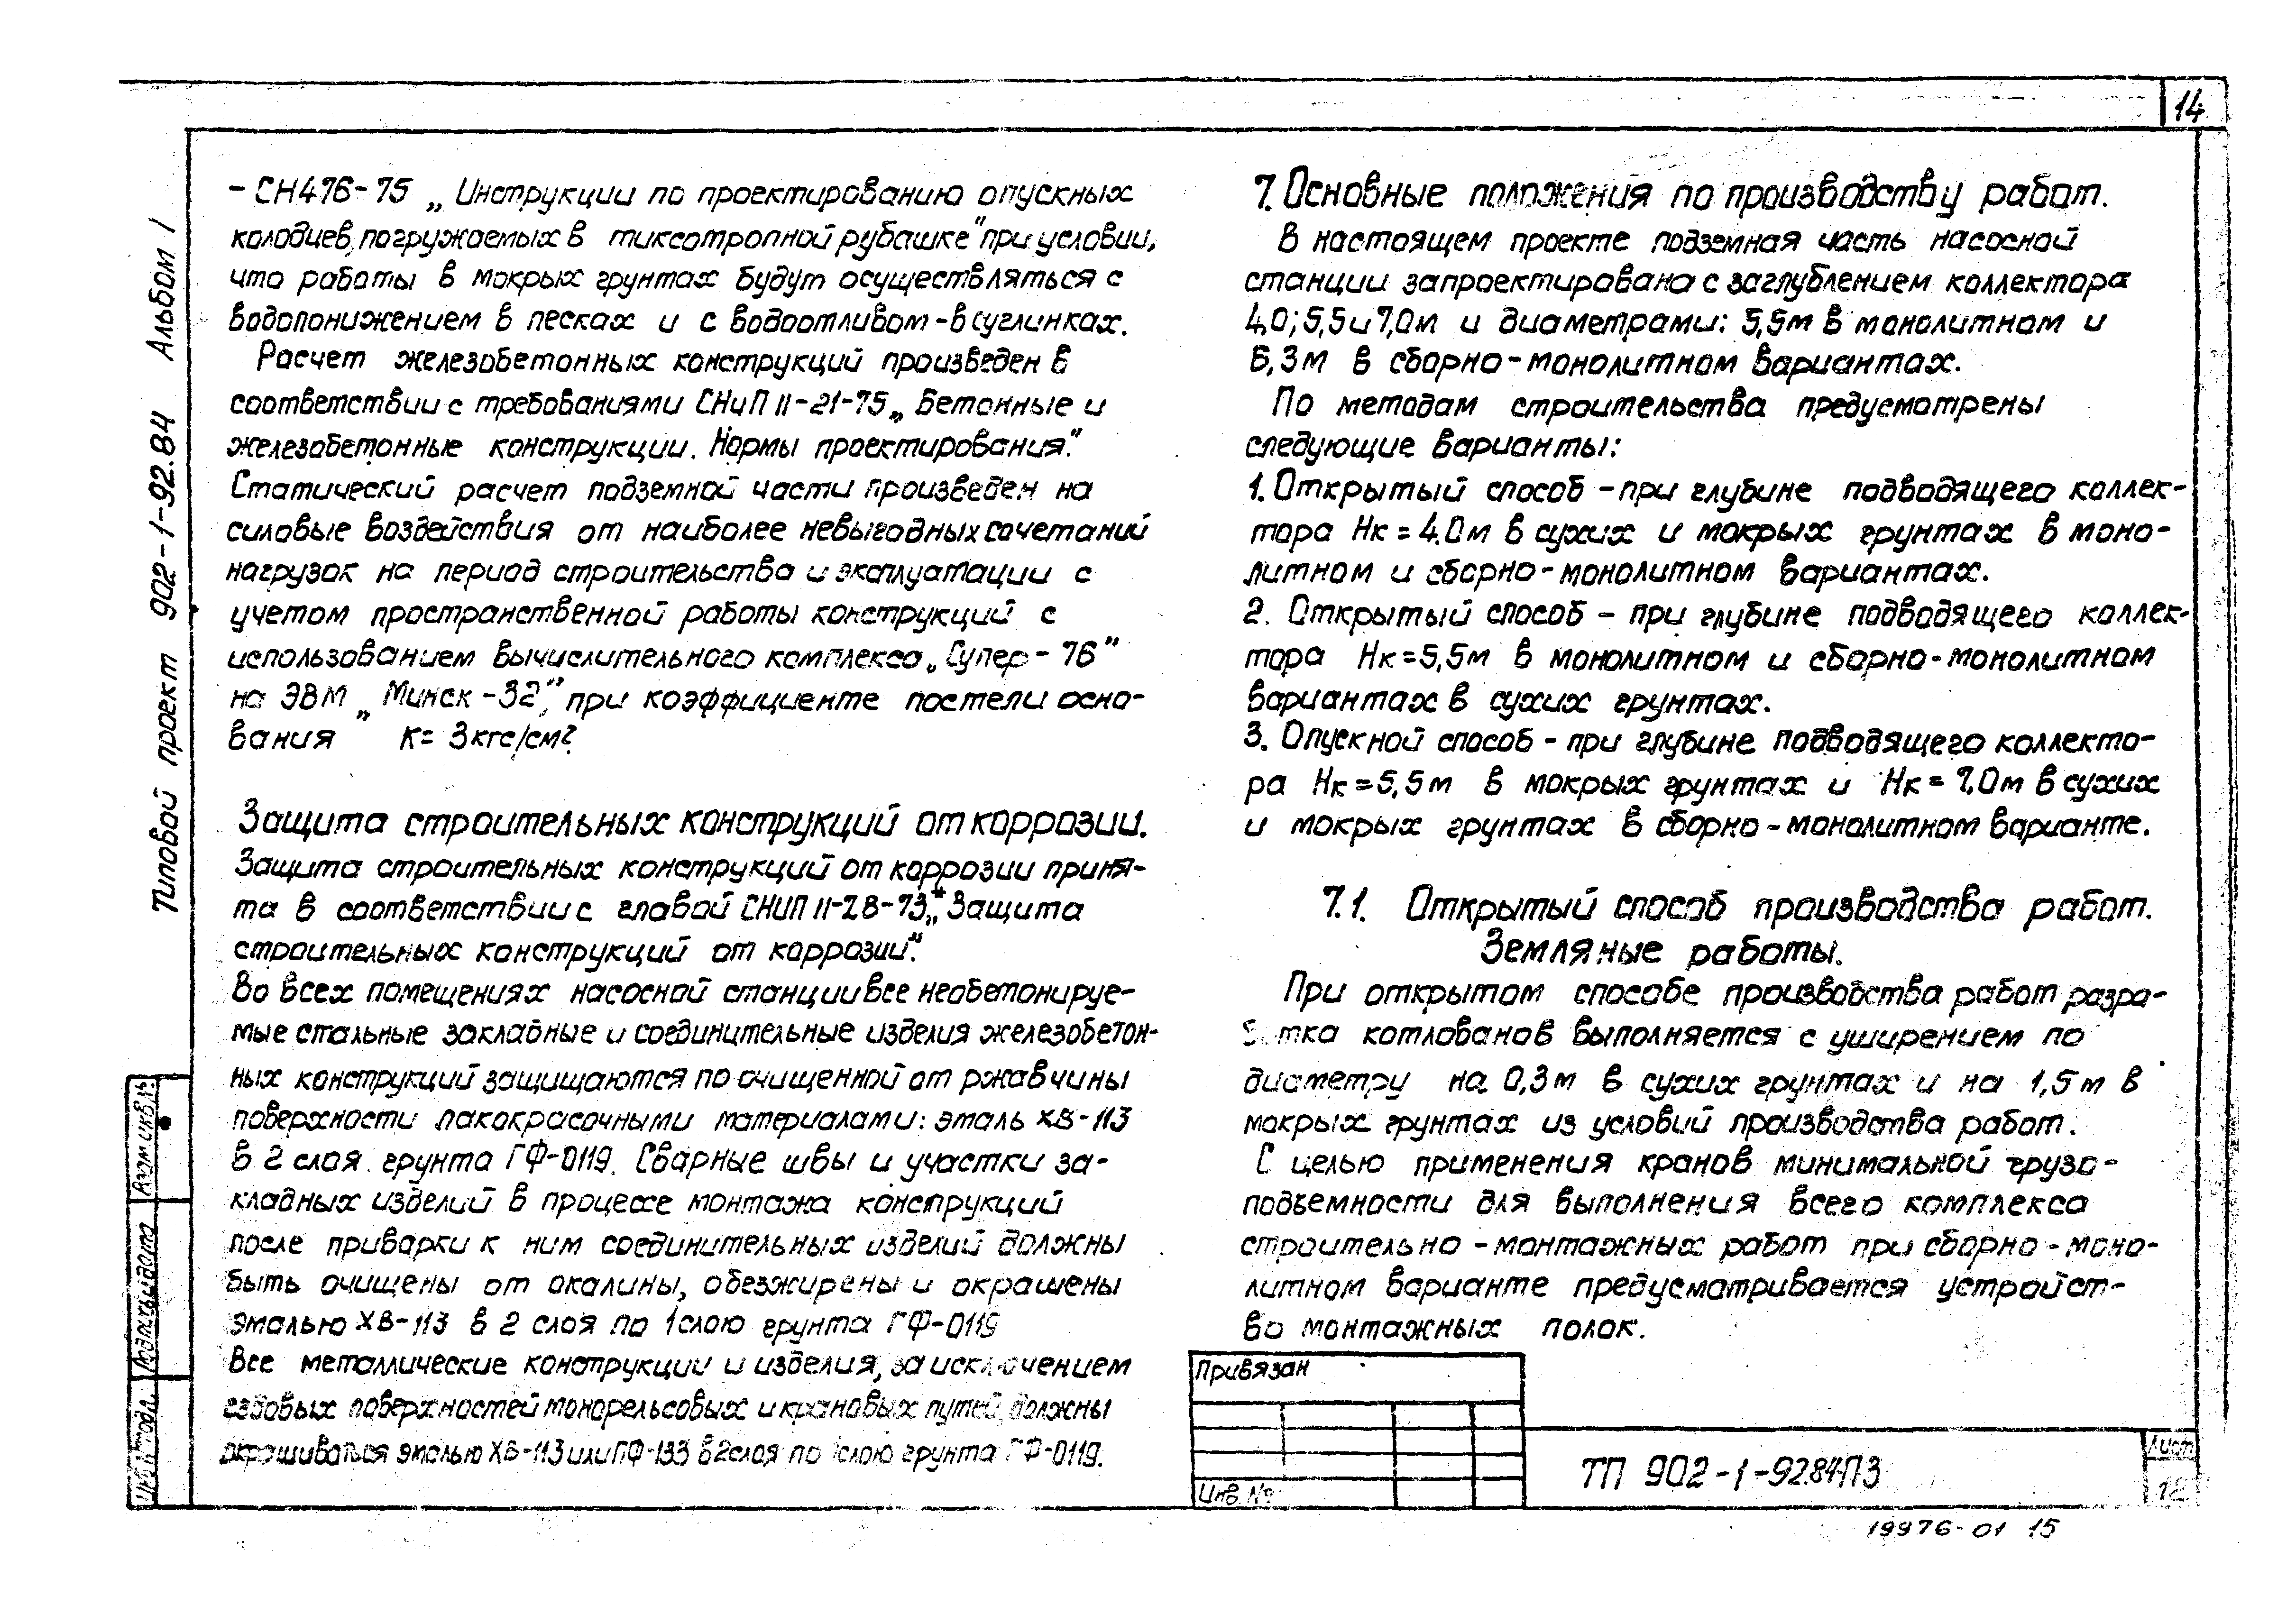 14
Типовой проект 902-1-92.84 Альбом I
- СН476-75 „Инструкции по проектированию опускных
колодцев, погружаемых в тиксотропной рубашке" при условии,
что работы в мокрых грунтах будут осуществляться с
водопонижением в песках и с водоотливом - в суглинках.
Расчет железобетонных конструкций произведен в
соответствии с требованиями СНиП II-21-75 „Бетонные и
железобетонные конструкции. Нормы проектирования".
Статический расчет подземной части произведен на
силовые воздействия от наиболее невыгодных сочетаний
нагрузок на период строительства и эксплуатации с
учетом пространственной работы конструкций с
использованием вычислительного комплекса „Супер-76"
на ЭВМ „Минск-32", при коэффициенте постели осно-
вания К= 3кгс/см².
Защита строительных конструкций от коррозии.
Защита строительных конструкций от коррозии приня-
та в соответствии с главой СНИП II-28-73* „Защита
строительных конструкций от коррозии".
Во всех помещениях насосной станции все необетонируе-
мые стальные закладные и соединительные изделия железобетон-
ных конструкций защищаются по очищенной от ржавчины
поверхности лакокрасочными материалами: эмаль ХВ-113
в 2 слоя грунта ГФ-0119. Сварные швы и участки за-
кладных изделий в процессе монтажа конструкций
после приварки к ним соединительных изделий должны
быть очищены от окалины, обезжирены и окрашены
эмалью ХВ-113 в 2 слоя по 1 слою грунта ГФ-0119
Все металлические конструкции и изделия, за исключением
ездовых поверхностей монорельсовых и крановых путей, должны
окрашиваться эмалью ХВ-113 или ПФ-133 в 2 слоя по 1 слою грунта ГФ-0119.
7. Основные положения по производству работ.
В настоящем проекте подземная часть насосной
станции запроектирована с заглублением коллектора
4,0; 5,5 и 7,0м и диаметрами: 5,5м в монолитном и
6,3м в сборно-монолитном вариантах.
По методам строительства предусмотрены
следующие варианты:
1. Открытый способ - при глубине подводящего коллек-
тора Нк = 4.0м в сухих и мокрых грунтах в моно-
литном и сборно-монолитном вариантах.
2. Открытый способ - при глубине подводящего коллек-
тора Нк=5,5м в монолитном и сборно-монолитном
вариантах в сухих грунтах.
3. Опускной способ - при глубине подводящего коллекто-
ра Нк=5,5м в мокрых грунтах и Нк= 7.0м в сухих
и мокрых грунтах в сборно-монолитном варианте.
7.1. Открытый способ производства работ.
Земляные работы.
При открытом способе производства работ разра-
ботка котлованов выполняется с уширением по
диаметру на 0,3м в сухих грунтах и на 1,5м в
мокрых грунтах из условий производства работ.
С целью применения кранов минимальной грузо-
подъемности для выполнения всего комплекса
строительно-монтажных работ при сборно-моно-
литном варианте предусматривается устройст-
во монтажных полок.
Взам инв.№
Подпись и дата
Инв.№ подл.
Привязан
Инв. №
ТП 902-1-92.84-ПЗ
Лист
12
19976-01 15